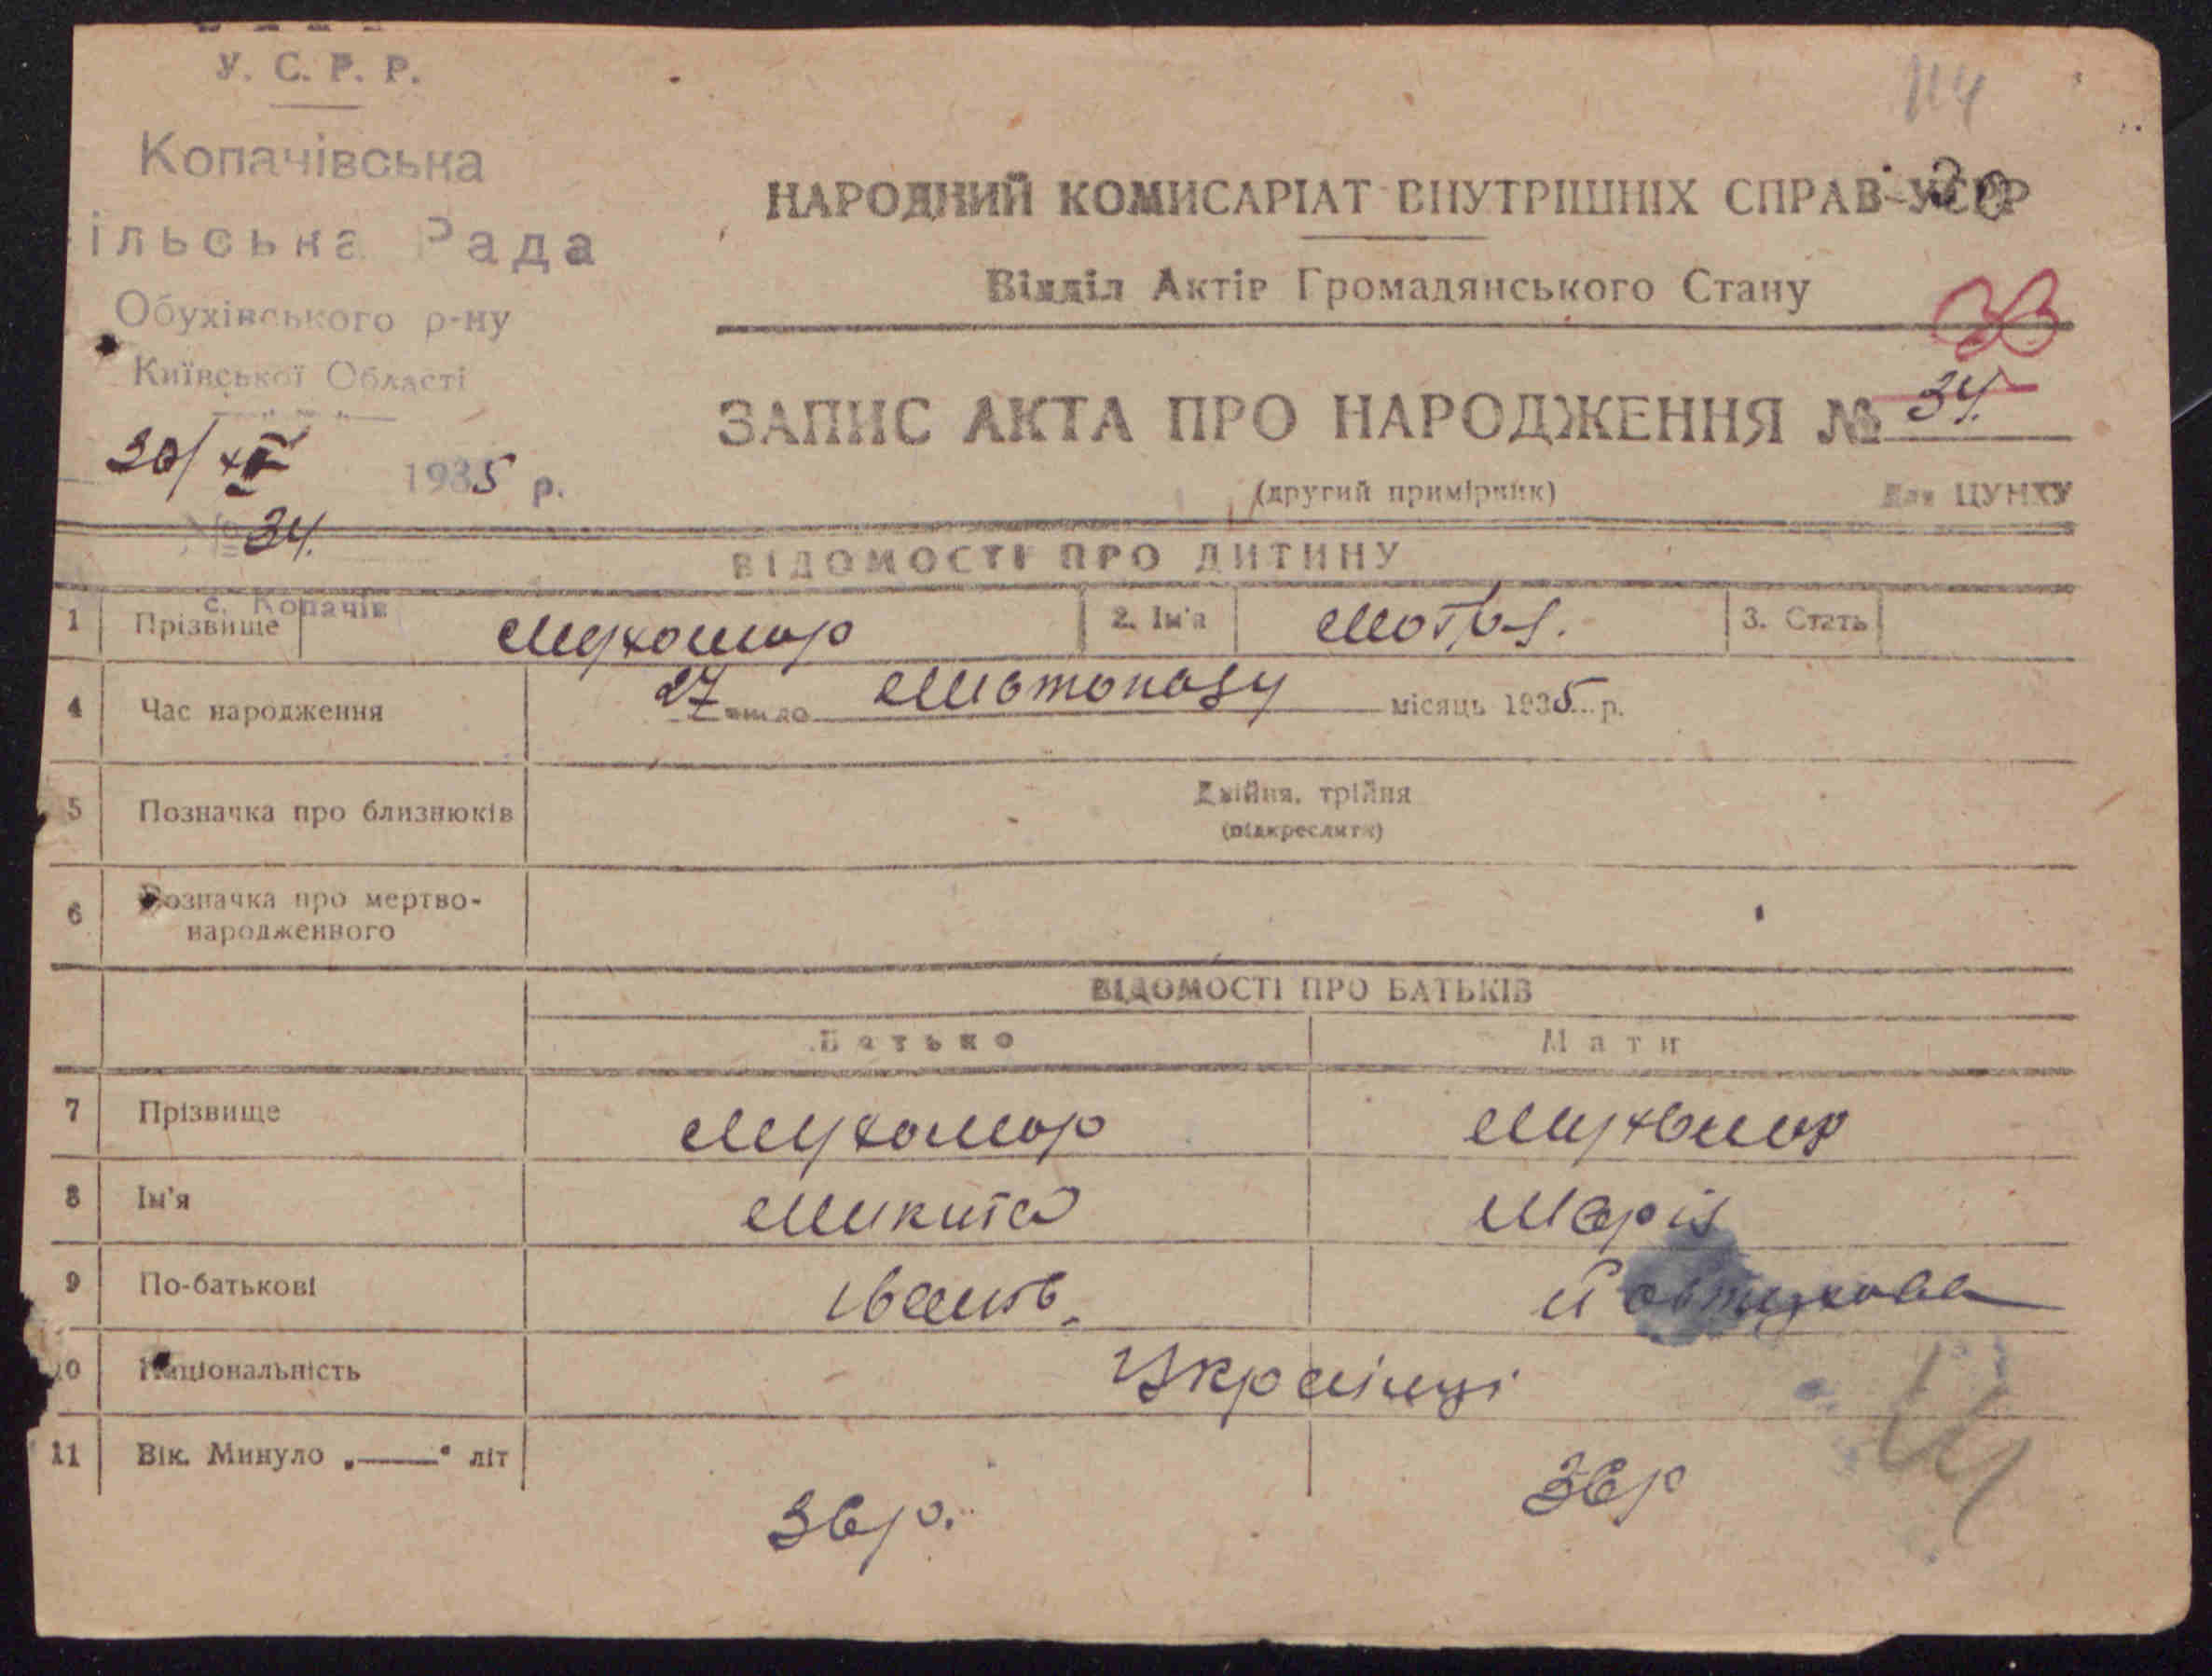 У. С. Р. Р.
114
Копачівська
ільська Рада
Обухівського р-ну
Київської Області
30/XI 1935 р.
№ 34.
с. Копачів
НАРОДНИЙ КОМИСАРІАТ ВНУТРІШНІХ СПРАВ УСРР
Відділ Актів Громадянського Стану
33
ЗАПИС АКТА ПРО НАРОДЖЕННЯ № 34.
(другий примірник) Для ЦУНХУ
ВІДОМОСТІ ПРО ДИТИНУ
1 Прізвище Мухомор 2. Ім'я Мотря. 3. Стать
4 Час народження 27 число листопаду місяць 1935 р.
5 Позначка про близнюків Двійня, трійня
(підкреслити)
6 Позначка про мертво-
народженного
ВІДОМОСТІ ПРО БАТЬКІВ
Батько Мати
7 Прізвище Мухомор Мухомор
8 Ім'я Микита Марія
9 По-батькові Іванов.
10 Національність Українці
11 Вік. Минуло „——“ літ
36р. 36р